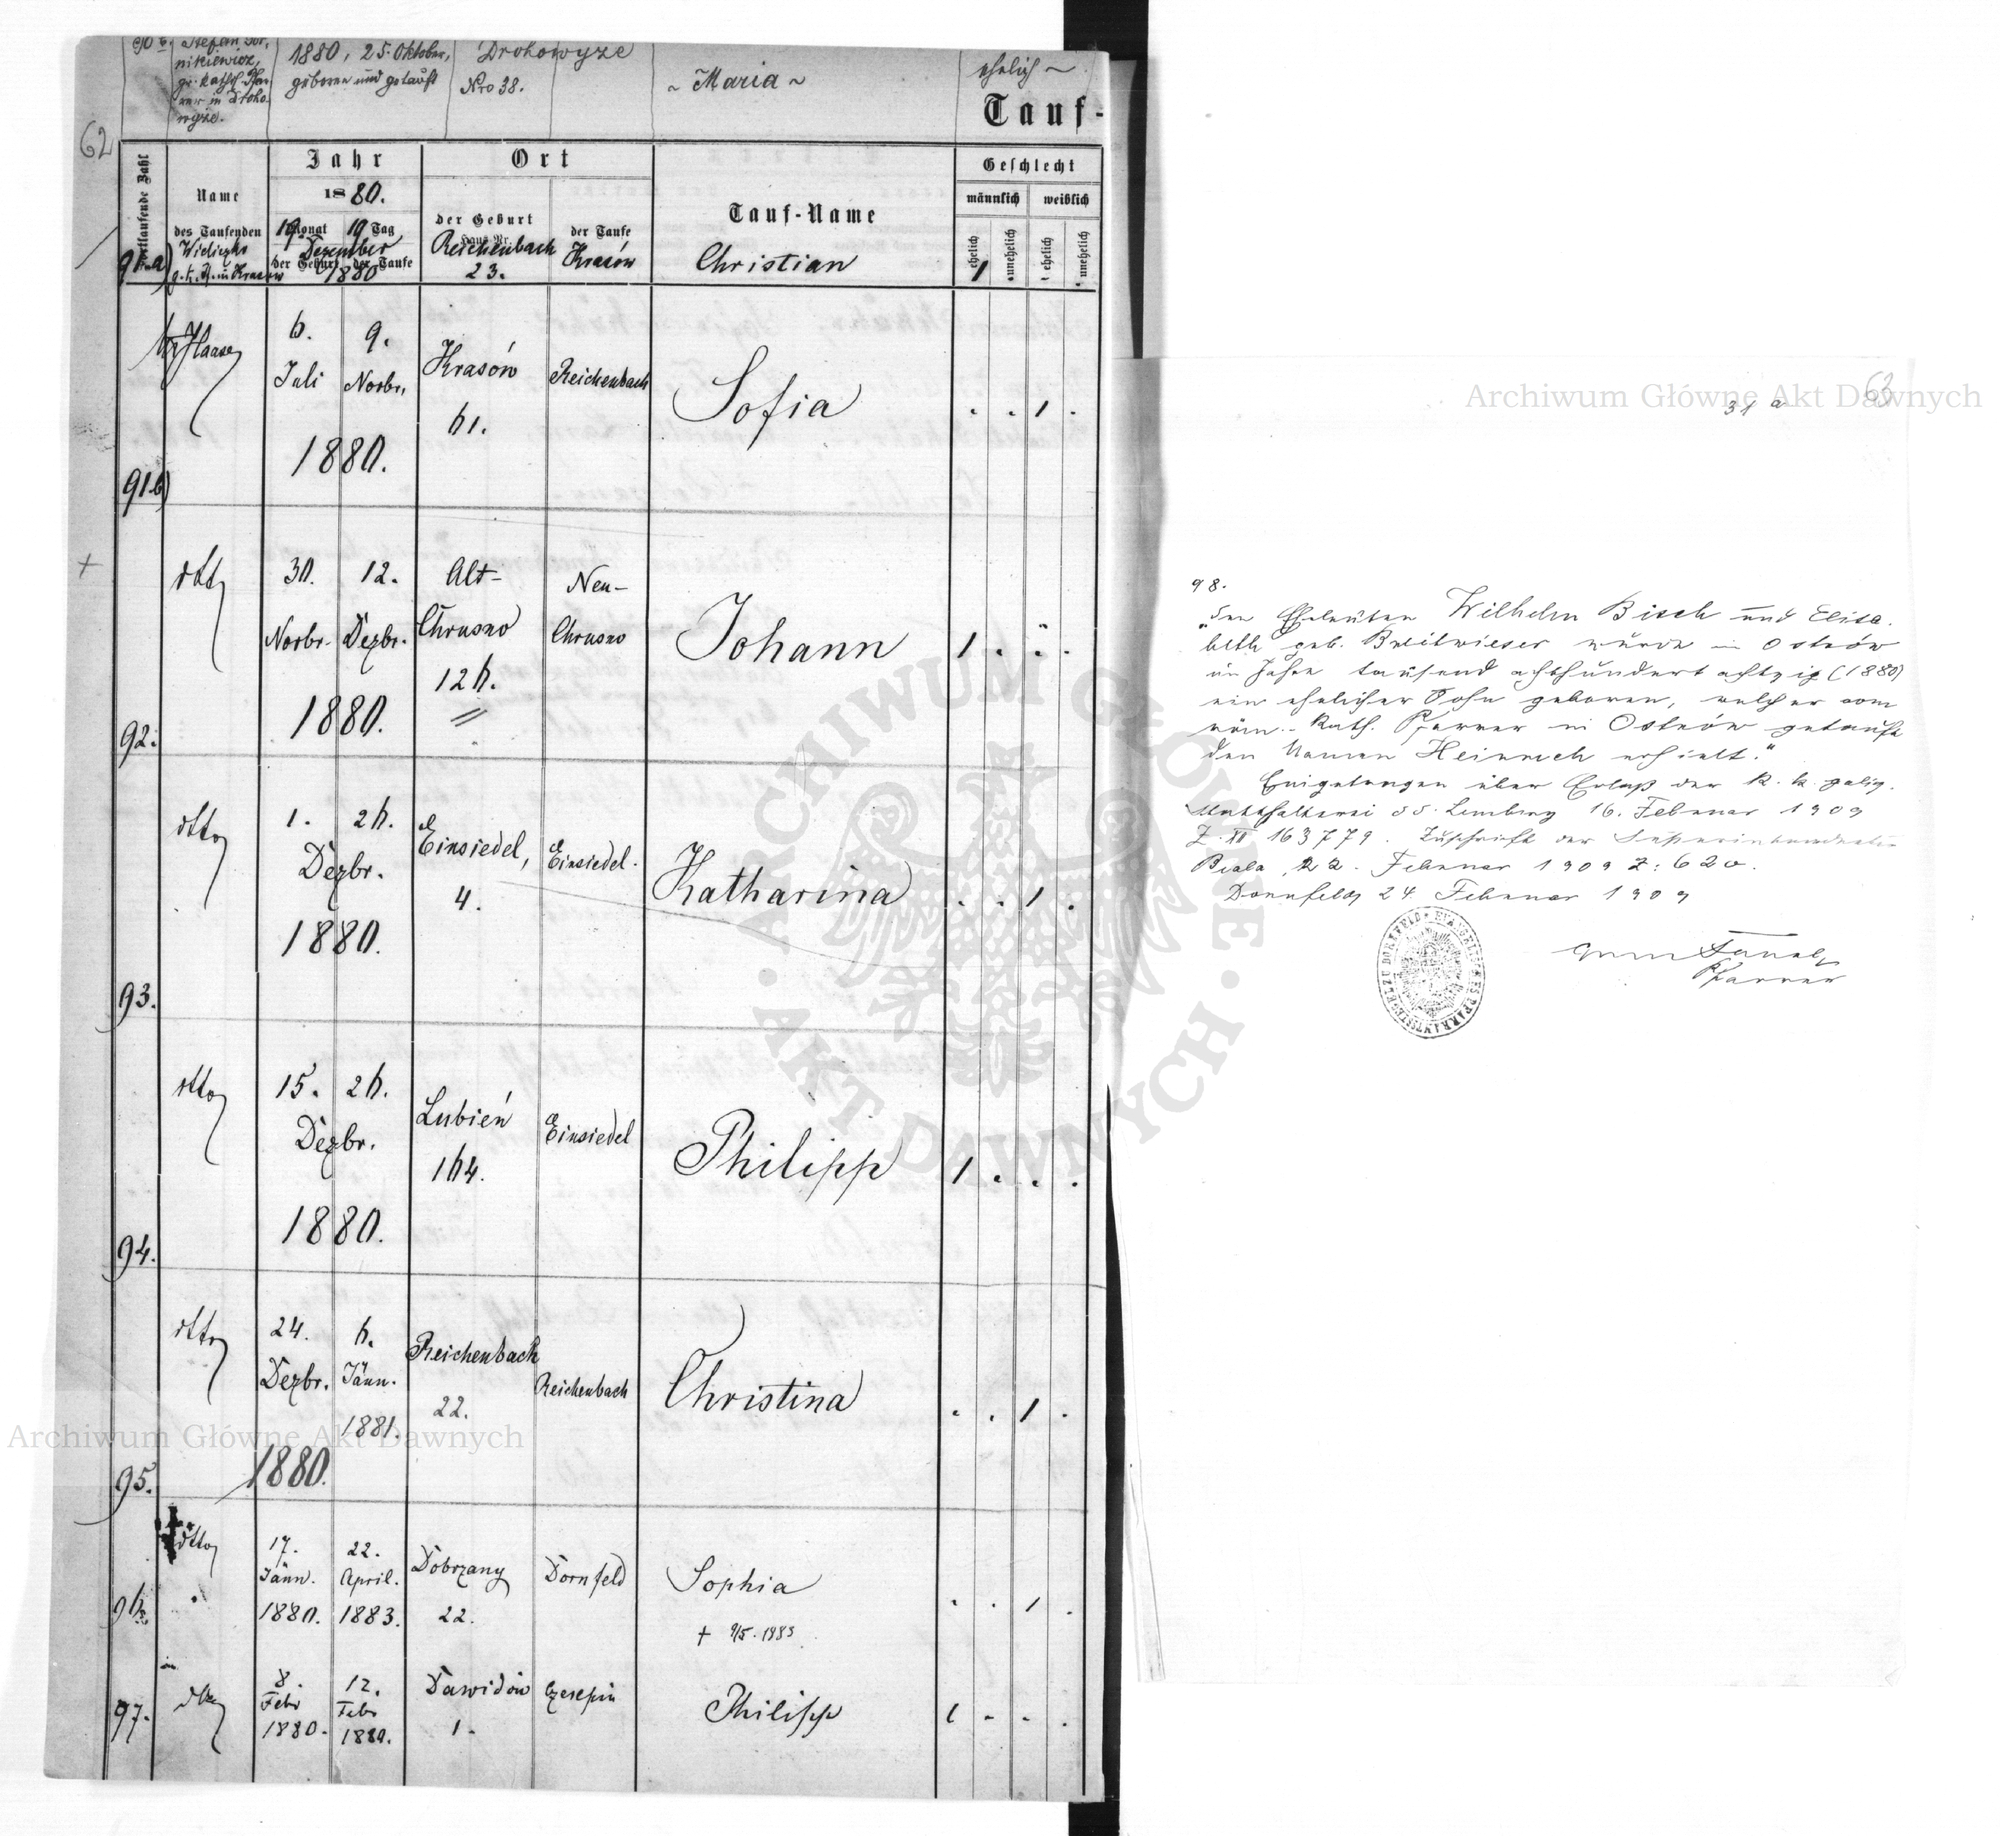 Stefan
nikiewicz,
gr. kathol. Pfar-
rer in Droho-
wyże.
1880, 25. Oktober,
geboren und getauft
Drohowyze
Nro 38.
~ Maria ~
ehelich ~
Tauf-
62
Fortlaufende Zahl
Name
des Taufenden
Jahr
1880.
Monat Tag
der Geburt der Taufe
Ort
der Geburt
Haus-Nr.
der Taufe
Tauf-Name
Geschlecht
männlich weiblich
ehelich unehelich ehelich unehelich
91a)
19. Dezember
1880
Reichenbach
23.
Krasów
Christian
1 . . .
91b)
Haase
6. Juli
9. Novbr.
1880.
Krasów
61.
Reichenbach
Sofia
. . 1 .
92.
dtto
30. Novbr.
12. Dezbr.
1880.
Alt-
Chrusno
126.
Neu-
Chrusno
Johann
1 . . .
93.
dtto
1. 26.
Dezbr.
1880.
Einsiedel,
4.
Einsiedel.
Katharina
. . 1 .
94.
dtto
15. 26.
Dezbr.
1880.
Lubień
164.
Einsiedel
Philipp
1 . . .
95.
dtto
24. Dezbr.
1880.
6. Jänn.
1881.
Reichenbach
22.
Reichenbach
Christina
. . 1 .
96.
dtto
17. Jänn.
1880.
22. April.
1883.
Dobrzany
22.
Dornfeld
Sophia
+ 9/5. 1883
. . 1 .
97.
dtto
8. Febr
1880.
12. Febr
1880.
Dawidów
1.
Philipp
1 . . .
31 a
63
98.
"Den Eheleuten Wilhelm Bisch und Elisa-
beth geb. Breitwieser wurde in Ostrów
im Jahre tausend achthundert achtzig (1880)
ein ehelicher Sohn geboren, welcher vom
röm.-kath. Pfarrer in Ostrów getauft
den Namen Heinrich erhielt."
Eingetragen über Erlaß der k. k. galiz.
Statthalterei dd. Lemberg 16. Februar 1909
Z. XI 163779. Zuschrift der Superintendentur
Biala, 22. Februar 1909 Z: 620.
Dornfeld, 24. Februar 1909
Pfarrer
EVANGELISCHES PFARRAMTSSIEGEL ZU DORNFELD
Archiwum Główne Akt Dawnych
Archiwum Główne Akt Dawnych
ARCHIWUM GŁÓWNE AKT DAWNYCH